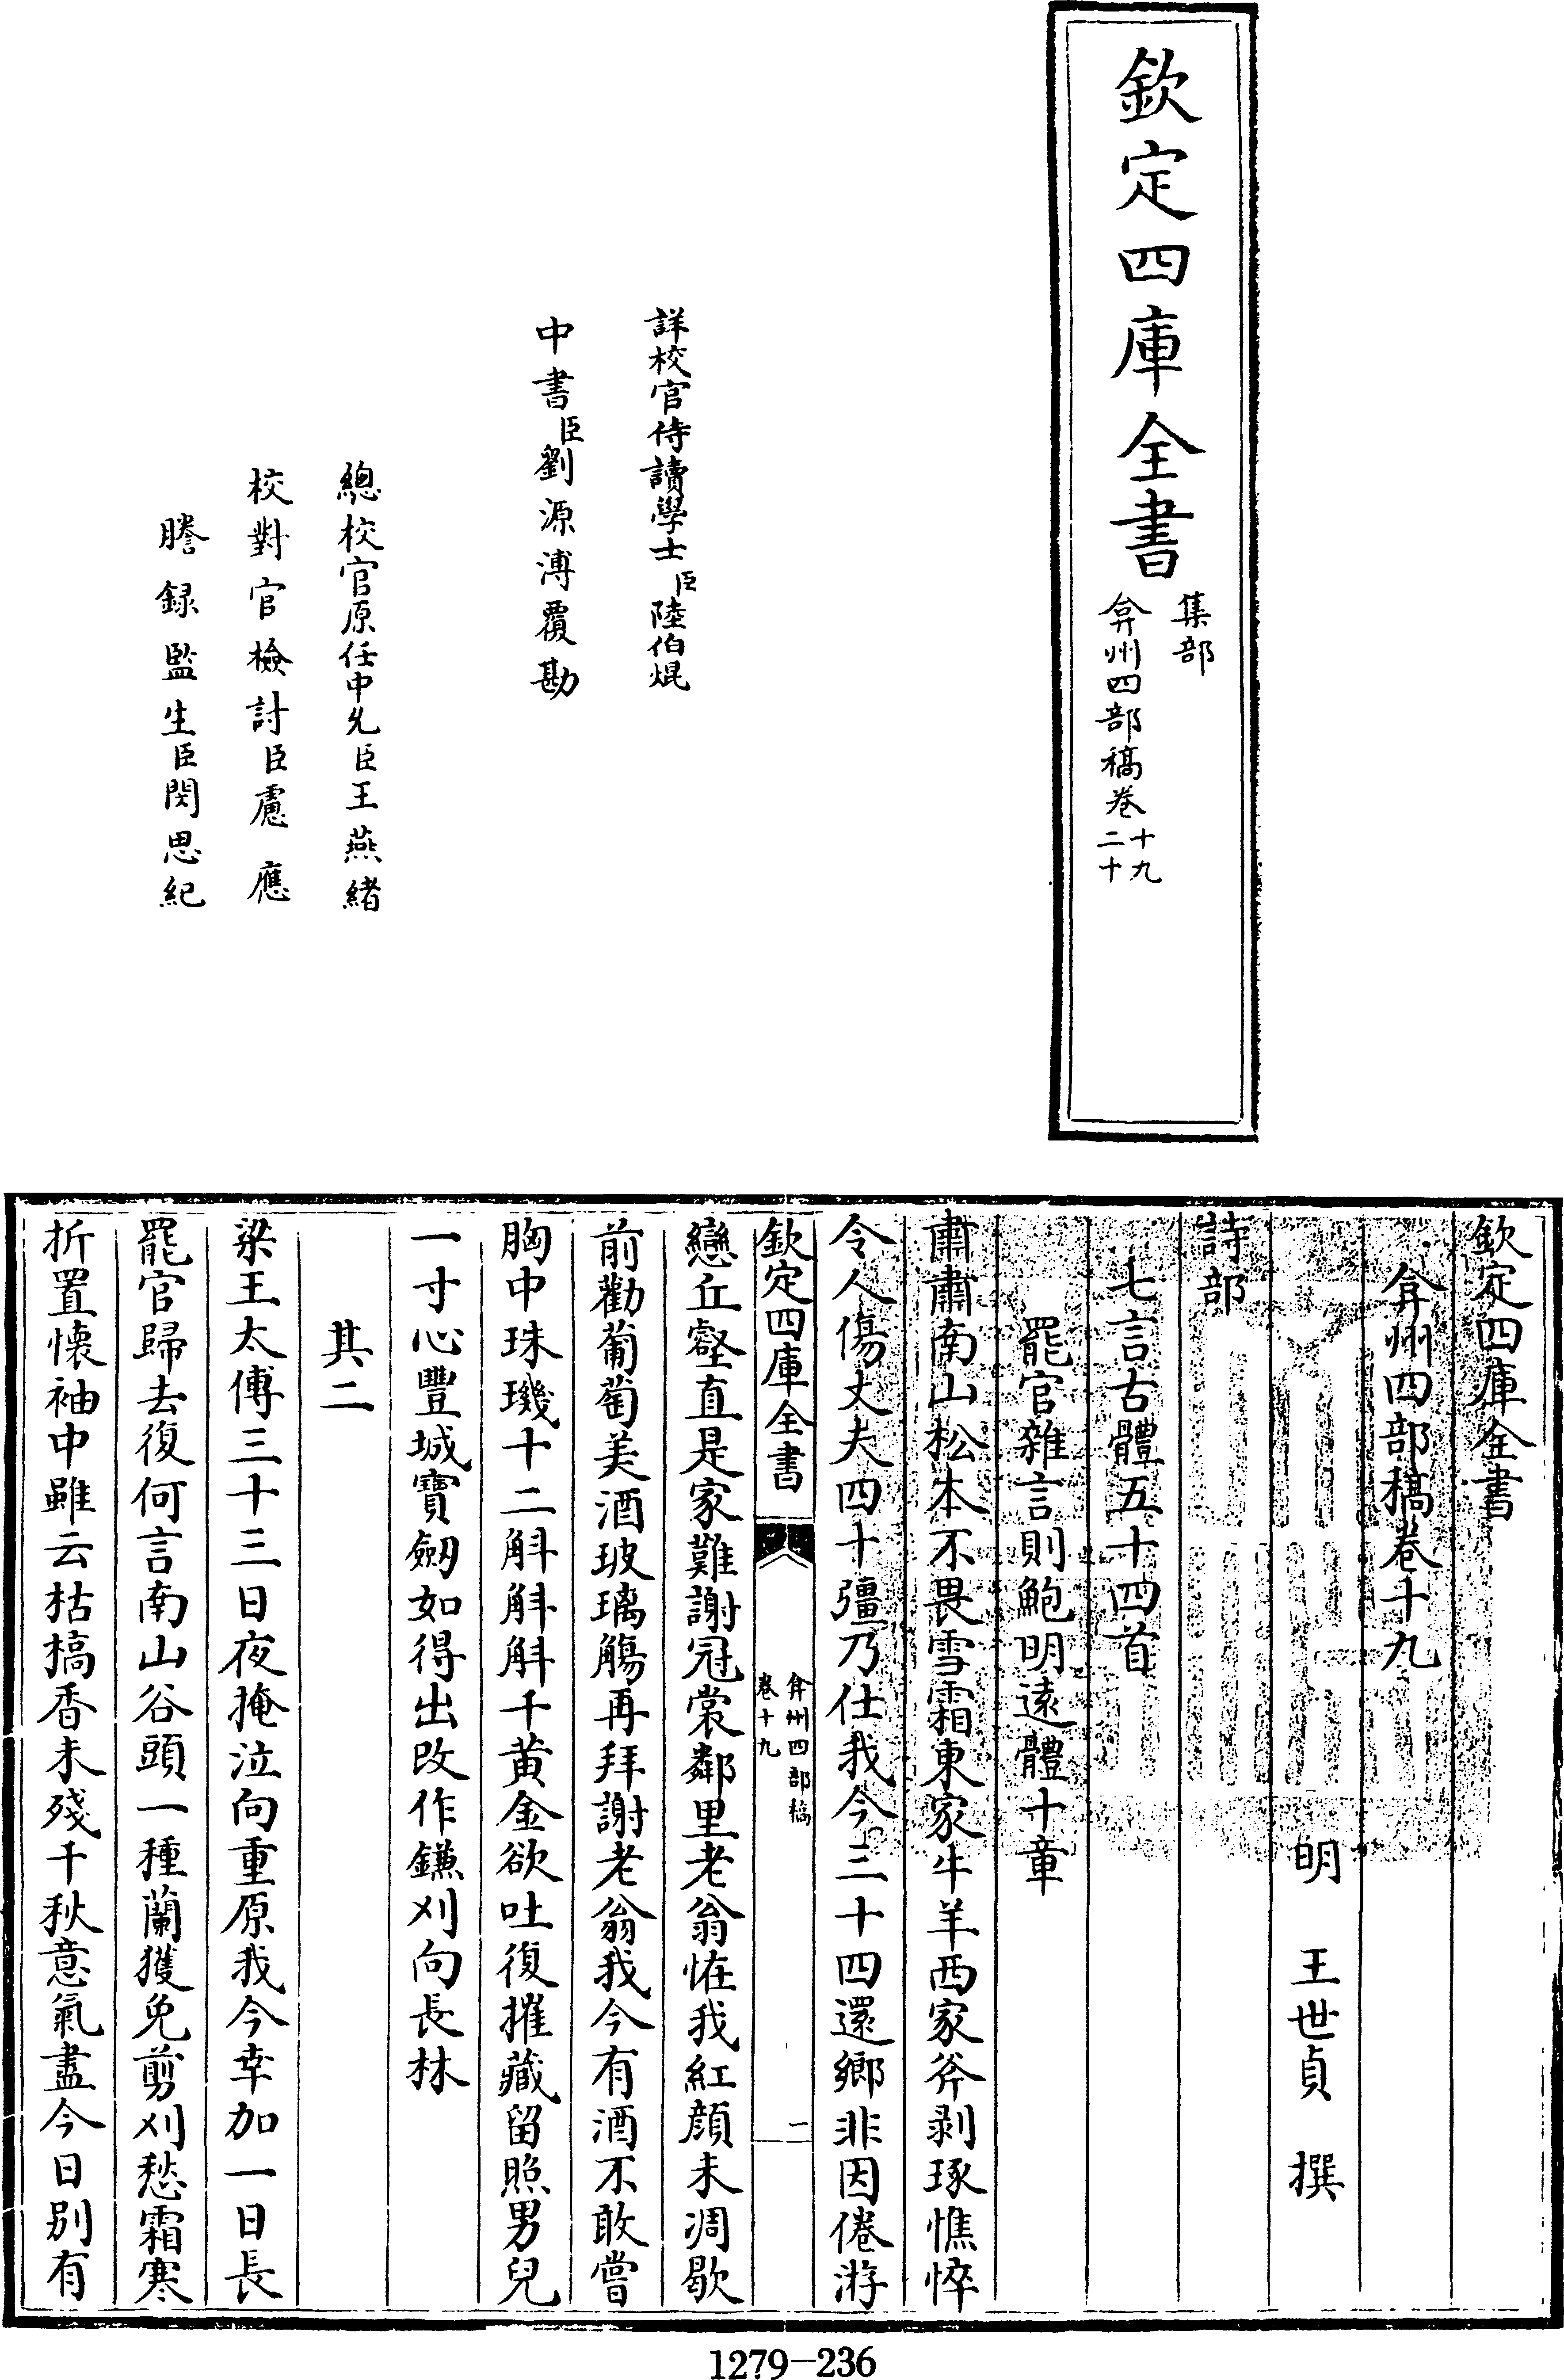 欽定四庫全書
集部
弇州四部稿卷十九
二十
詳校官侍讀學士臣陸伯焜
中書臣劉源溥覆勘
總校官原任中允臣王燕緒
校對官檢討臣盧應
謄録監生臣閔思紀
欽定四庫全書
弇州四部稿卷十九
明王世貞撰
詩部
七言古體五十四首
罷官雜言則鮑明遠體十章
肅肅南山松本不畏雪霜東家牛羊西家斧剥琢憔悴
令人傷丈夫四十彊乃仕我今三十四還鄉非因倦游
欽定四庫全書
弇州四部稿
卷十九
一
戀丘壑直是家難謝冠裳鄰里老翁恠我紅顔未凋歇
前勸葡萄美酒玻璃觴再拜謝老翁我今有酒不敢嘗
胸中珠璣十二斛斛斛千黄金欲吐復摧藏留照男兒
一寸心豐城寶劒如得出改作鎌刈向長林
其二
梁王太傅三十三日夜掩泣向重原我今幸加一日長
罷官歸去復何言南山谷頭一種蘭獲免剪刈愁霜寒
折置懷袖中雖云枯槁香未殘千秋意氣盡今日别有
1279-236